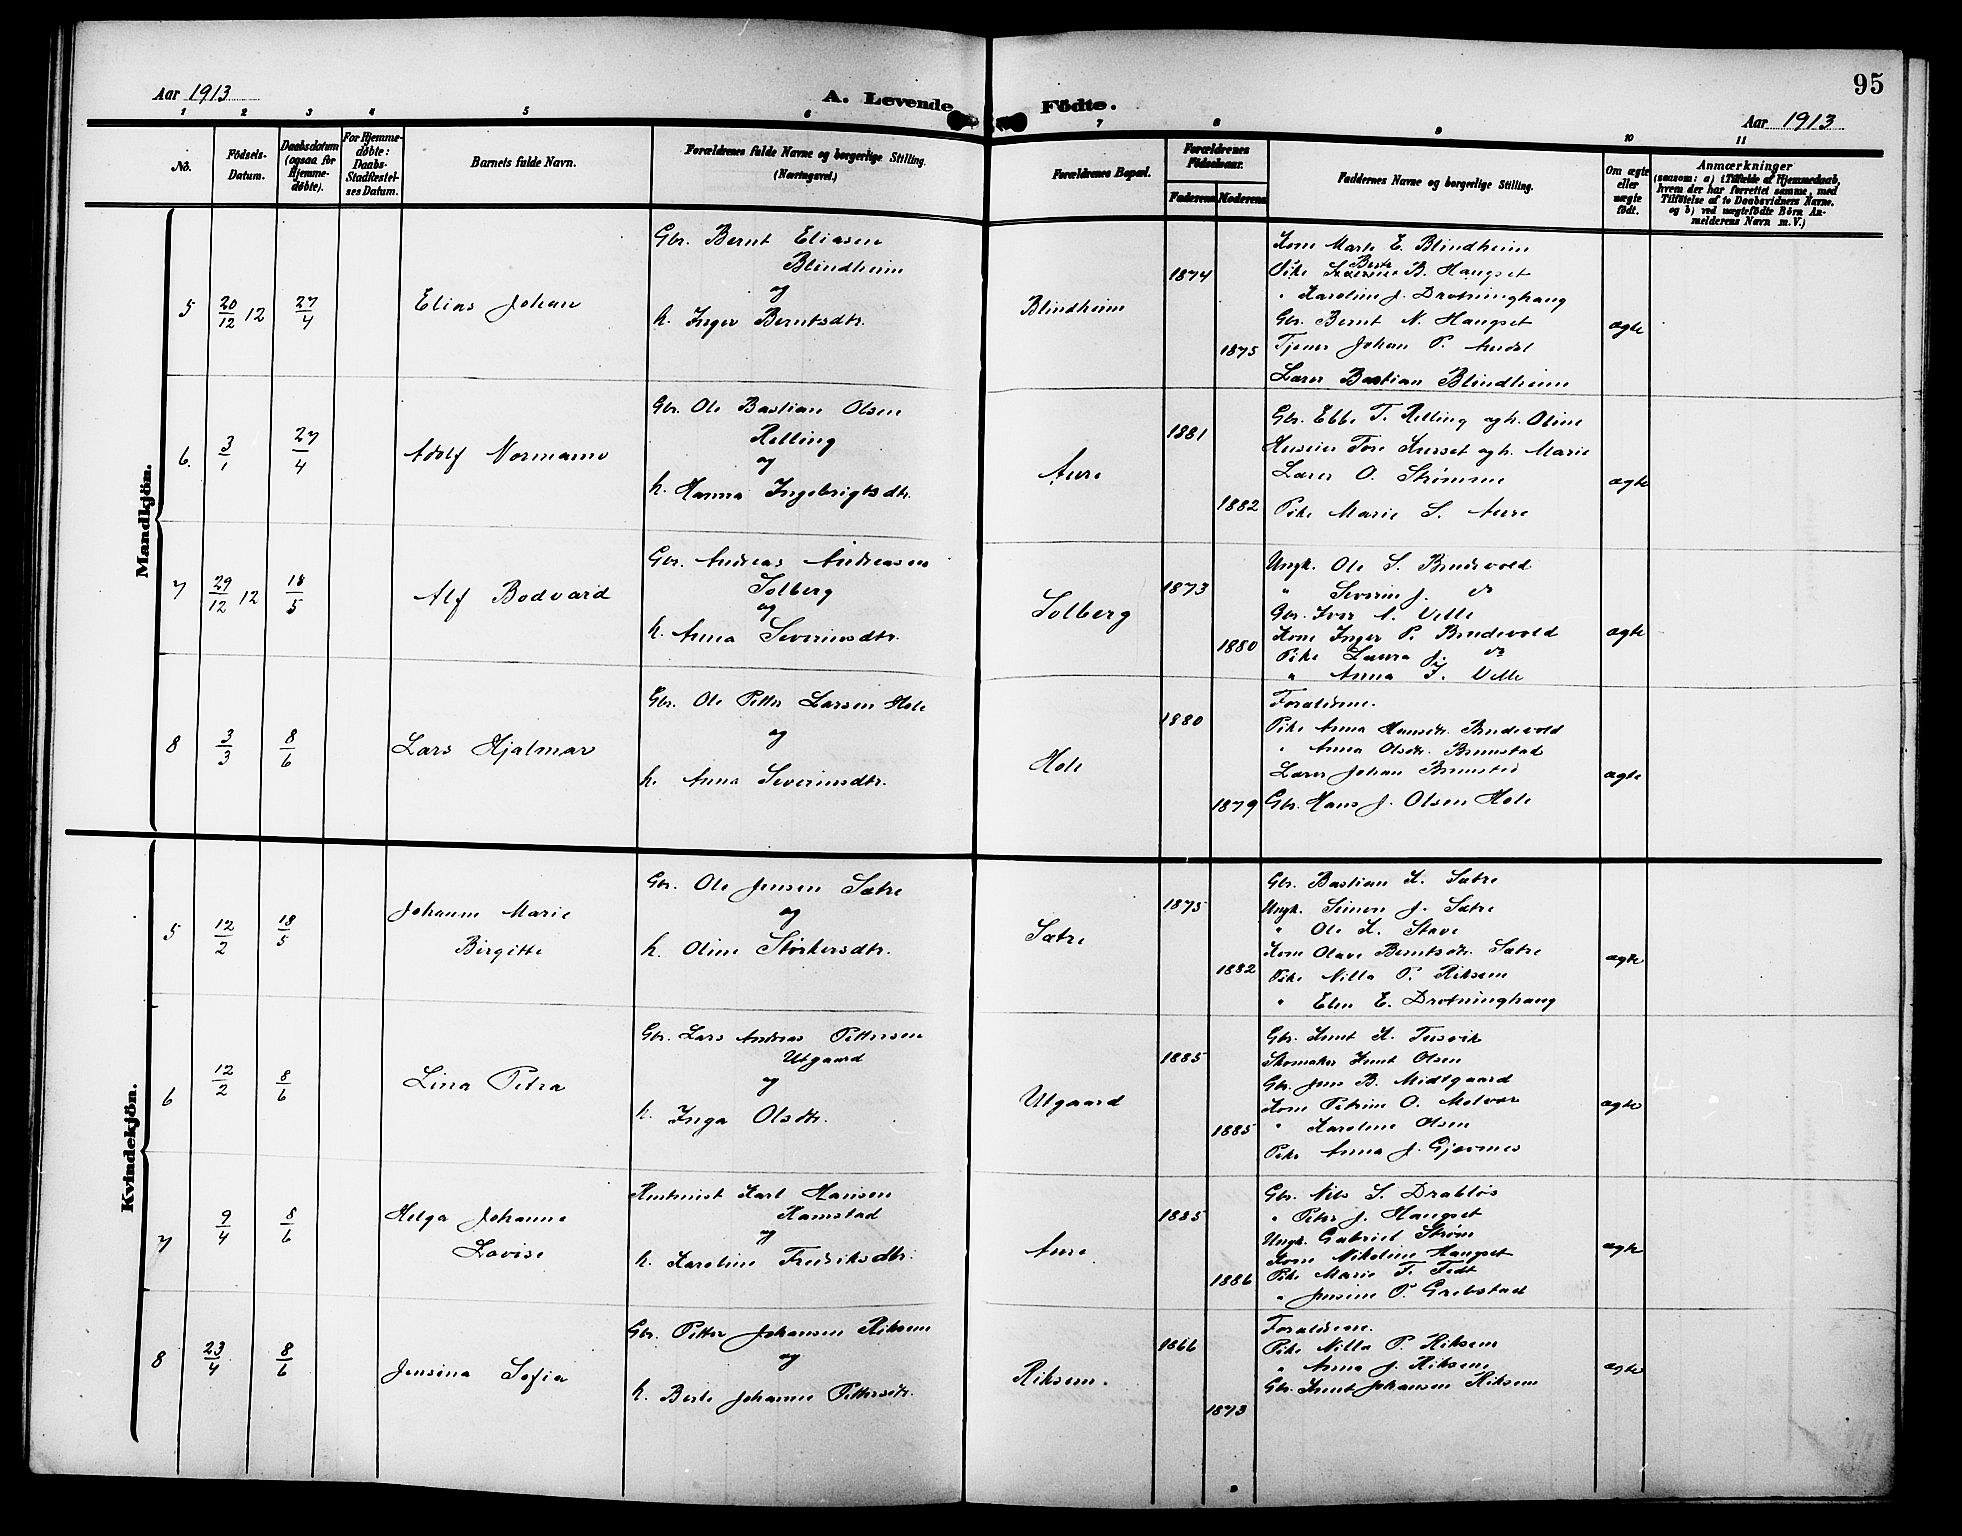 95
Aar 1913
A. Levende Födte.
Aar 1913
1 2 3 4 5 6 7 8 9 10 11
No.
Födsels-Datum.
Daabsdatum (ogsaa for Hjemme-døbte).
For Hjemme-døbte: Daabs-Stadfæstelses Datum.
Barnets fulde Navn.
Forældrenes fulde Navne og borgerlige Stilling. (Næringsvei.)
Forældrenes Bopæl.
Forældrenes Födselsaar.
Faderens Moderens
Faddernes Navne og borgerlige Stilling.
Om ægte eller uægte födt.
Anmærkninger
(saasom: a) i Tilfælde af Hjemmedaab,
hvem der har forrettet samme, med
Tilföielse af to Daabsvidners Navne,
og b) ved uægtefödte Börn An-
melderens Navn m. V.)
Mandkjön.
5 20/12 12 27/4 Elias Johan
Gbr. Bernt Eliasen
Blindheim
og
h. Inger Berntsdtr.
Blindheim 1874 1875
Kone Marte E. Blindheim
Pike B. Haugset
" Karoline J. Drotninghaug
Gbr. Bernt N. Haugset
Tjener Johan P.
Lærer Bastian Blindheim
ægte
6. 3/1 27/4 Adolf Normann
Gbr. Ole Bastian Olsen
Relling
og
h. Hanna Ingebrigtsdtr.
Aure 1881 1882
Gbr. Ebbe T. Relling og h. Oline
Tore Kurset og h. Marie
Lærer O. Strømme
Pike Marie S. Aure
ægte
7 29/12 12 18/5 Alf Bodvard
Gbr. Andreas Andreasen
Solberg
og
h. Anna Severinsdtr.
Solberg 1873 1880
Ungk. Ole S. Brudevold
" Severin J. do
Gbr. Iver A. Velle
Kone Inger P. Brudevold
Pike Laura J. do
" Anna I. Velle
ægte
8 3/3 8/6 Lars Hjalmar
Gbr. Ole Petter Larsen Hole
og
h. Anna Severinsdtr.
Hole 1880 1879
Forældrene.
Pike Anna Hansdtr. Brudevold
" Anna Olsdtr. Brunstad
Lærer Johan Brunstad
Gbr. Hans J. Olsen Hole
ægte
Kvindekjön.
5 12/2 18/5 Johanne Marie
Birgitte
Gbr. Ole Jensen Sætre
og
h. Oline Størkersdtr.
Sætre 1875 1882
Gbr. Bastian K. Sætre
Ungk. Simon J. Sætre
" Ole K. Stave
Kone Olave Berntsdtr. Sætre
Pike Nilla P. Riksem
" Elen E. Drotninghaug
ægte
6 12/2 8/6 Lina Petra
Gbr. Lars Andreas Pettersen
Utgaard
og
h. Inga Olsdtr.
Utgaard 1885 1885
Gbr. Knut K. Tusvik
Skomaker Knut Olsen
Gbr. Jens B. Midtgaard
Kone Petrine O. Molvær
" Karoline Olsen
Pike Anna J. Gjævenes
ægte
7 9/4 8/6 Helga Johanne
Lovise
Karl Hansen
Ramstad
og
h. Karoline Fredriksdtr.
Aure 1885 1886
Gbr. Nils S. Drabløs
" Peter J. Haugset
Ungk. Gabriel Strøm
Kone Nikoline Haugset
Pike Marie T. Fedt
" Jensine P. Grebstad
ægte
8 23/4 8/6 Jensina Sofie
Gbr. Petter Johansen Riksem
og
h. Berte Johanne Pettersdtr.
Riksem. 1866 1873
Forældrene.
Pike Nilla P. Riksem
" Anna J. Riksem
Gbr. Knut Johansen Riksem
ægte